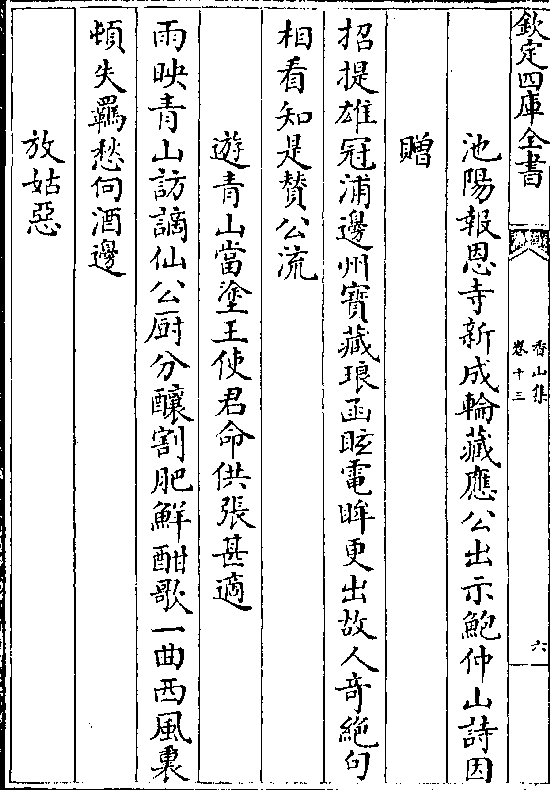 欽定四庫全書
香山集
卷十三
六
池陽報恩寺新成輪藏應公出示鮑仲山詩因
贈
招提雄冠浦邊州寶藏琅函眩電眸更出故人奇絶句
相看知是賛公流
遊青山當塗王使君命供張甚適
雨映青山訪謫仙公厨分釀割肥鮮酣歌一曲西風裏
頓失羈愁向酒邊
放姑惡